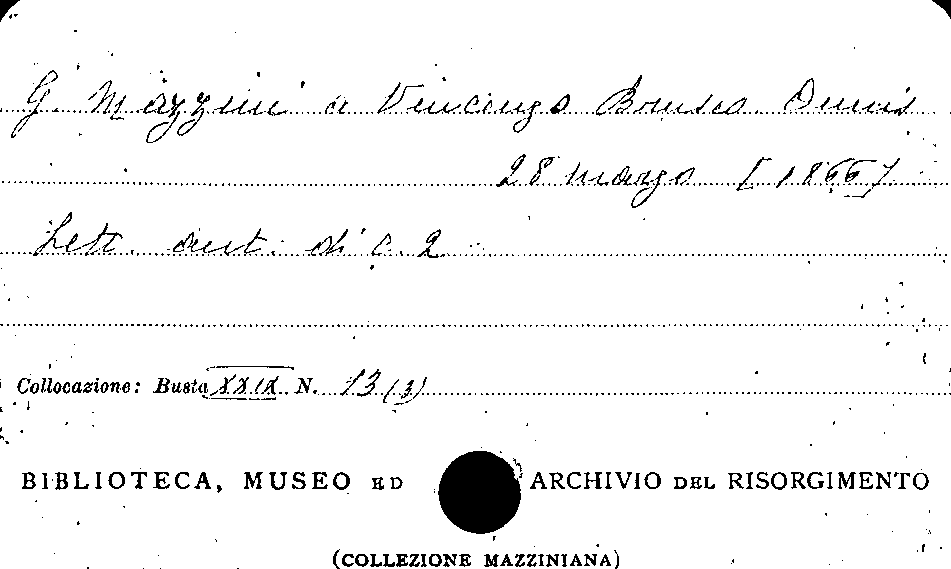 G. Mazzini a Vincenzo Brusco Onnis
28 marzo [1866]
Lett. aut. di c. 2
Collocazione: Busta XXIX N. 13 (3)
BIBLIOTECA, MUSEO ED ARCHIVIO DEL RISORGIMENTO
(COLLEZIONE MAZZINIANA)